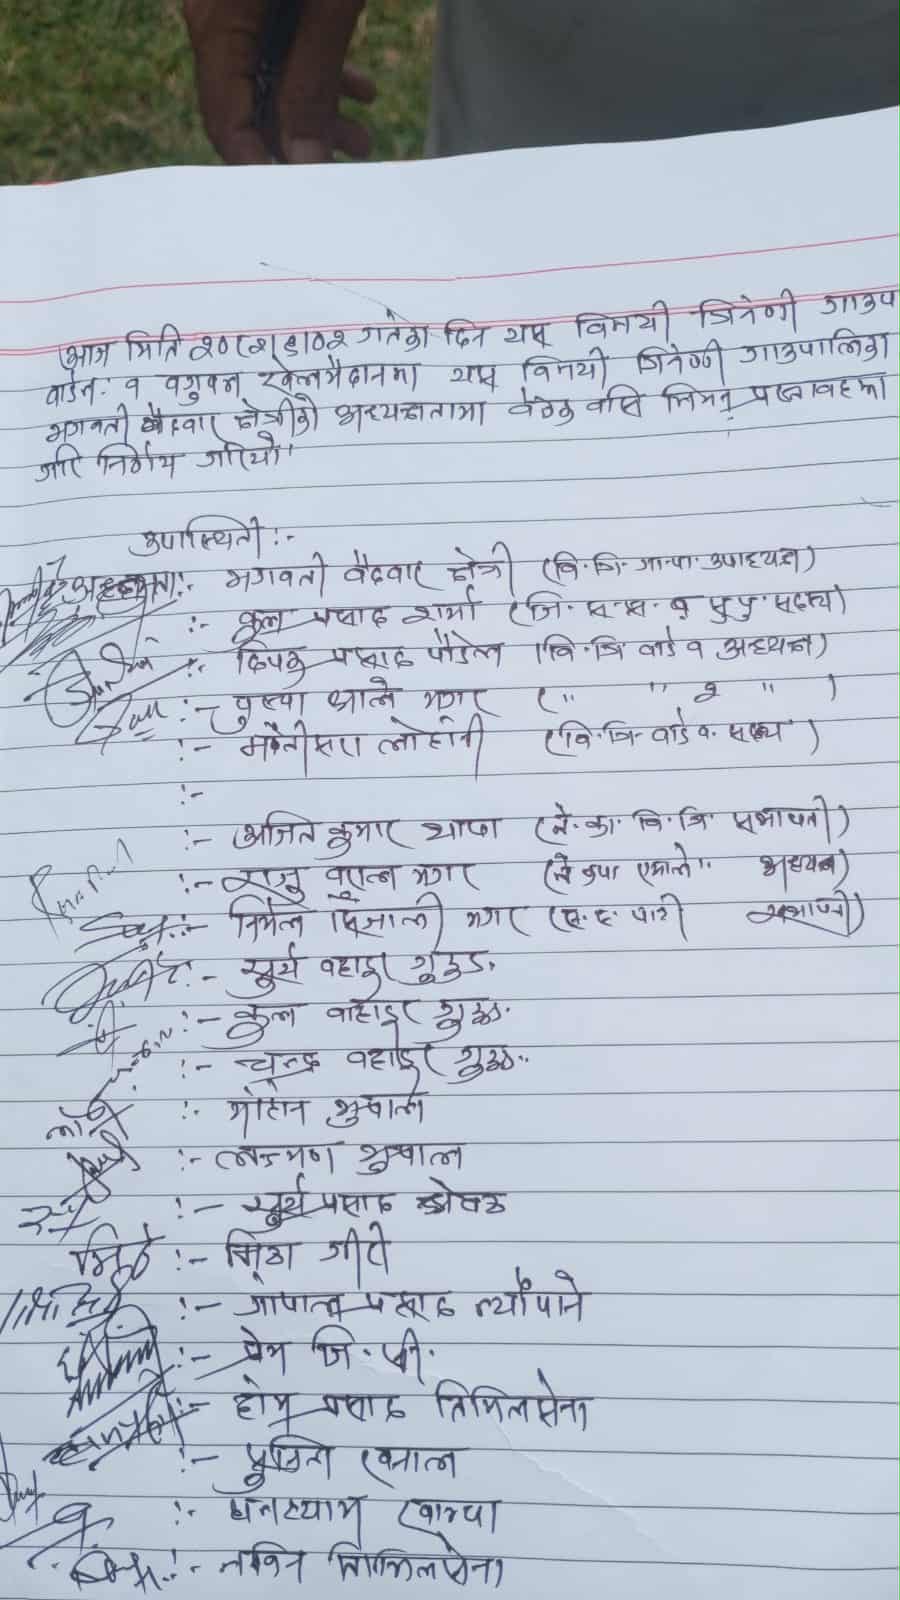 आज मिति २०८२।८।०२ गतेका दिन यस विनयी त्रिवेणी गाउपा
वार्ड नं: १ वगुवन खेलमैदानमा यस विनयी त्रिवेणी गाउपालिका
भगवती वैदवार क्षेत्रीको अध्यक्षतामा वैठक वसि निम्न प्रस्तावहरुमा
गरि निर्णय गरियो
उपास्थिती :-
अध्यक्षता:- भगवती वैदवार क्षेत्री (वि.त्रि.गा.पा. उपाध्यक्ष)
:- कुल प्रसाद शर्मा (जि.स.स. व पु.पु. सदस्य)
:- दिपक प्रसाद पौडेल (वि.त्रि वार्ड १ अध्यक्ष)
:- पुस्पा आले मगर ( " " २ " )
:- लोहानी (वि.त्रि. वार्ड १. सदस्य)
:-
:- अजित कुमार थापा (ने.का. वि.त्रि. सभापती)
:- राजु पुलाल मगर (ने कपा एमाले " अध्यक्ष)
:- निर्मल सिजाली मगर ( पार्टी सभापती)
:- सुर्य वहादुर गुरुङ.
:- कुल वाहादुर गुरुङ.
:- चन्द्र वहादुर गुरुङ..
:- मोहन भुषाल
:- लक्ष्मण भुषाल
:- सुर्य प्रसाद
मिठु :- मिठा गीरी
:- गोपाल प्रसाद न्यौपाने
:- प्रेम जि.सी.
:- होम प्रसाद तिमिलसेना
:- खनाल
:- घनश्याम खाम्चा
:- नविन तिमिलसेना